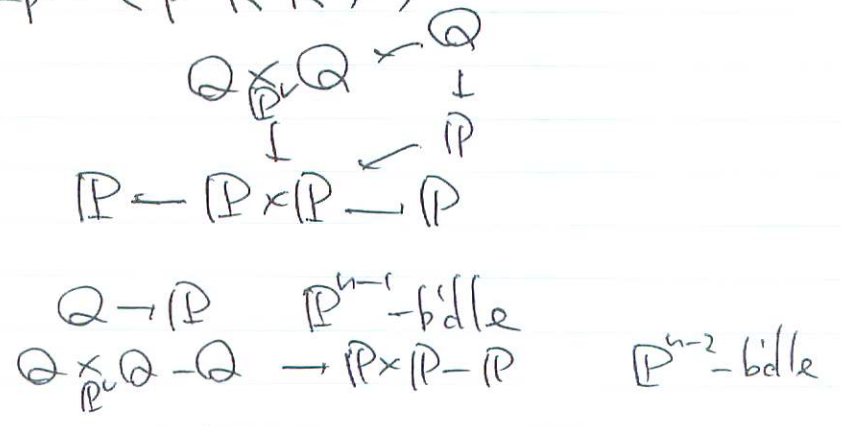 Q ×_{P^∨} Q ← Q
↓ ↓
P
P ← P × P → P
Q → P P^{n-1}-bdle
Q ×_{P^∨} Q − Q → P × P − P P^{n-2}-bdle